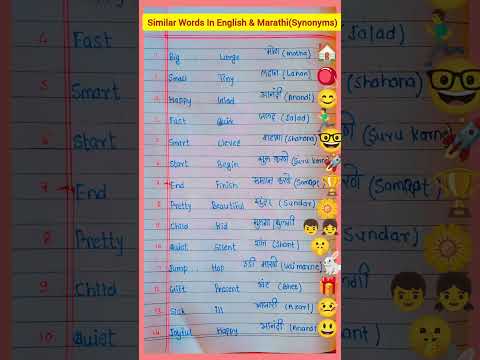 Similar Words In English & Marathi(Synonyms)
Big Large मोठा (motha)
Small Tiny लहान (Lahan)
Happy Glad आनंदी (Anandi)
Fast Quick जलद (Jalad)
Smart Clever शहाणा (Shahana)
Start Begin सुरू करणे (Suru karne)
End Finish समाप्त करणे (Samapt
Pretty Beautiful सुंदर (Sundar)
Child Kid मुलगा/मुलगी
10 Quiet Silent शांत (Shant)
Jump Hop उडी मारणे (Udi marane)
Gift Present भेट (Bhet)
Sick Ill आजारी (Ajari)
Joyful Happy आनंदी (Anandi)
4 Fast
5 Smart
6 Start
7 End
8 Pretty
9 Child
10 Quiet
Jalad)
(Shahana)
Suru karne)
(Samapt
Sundar)
ant)